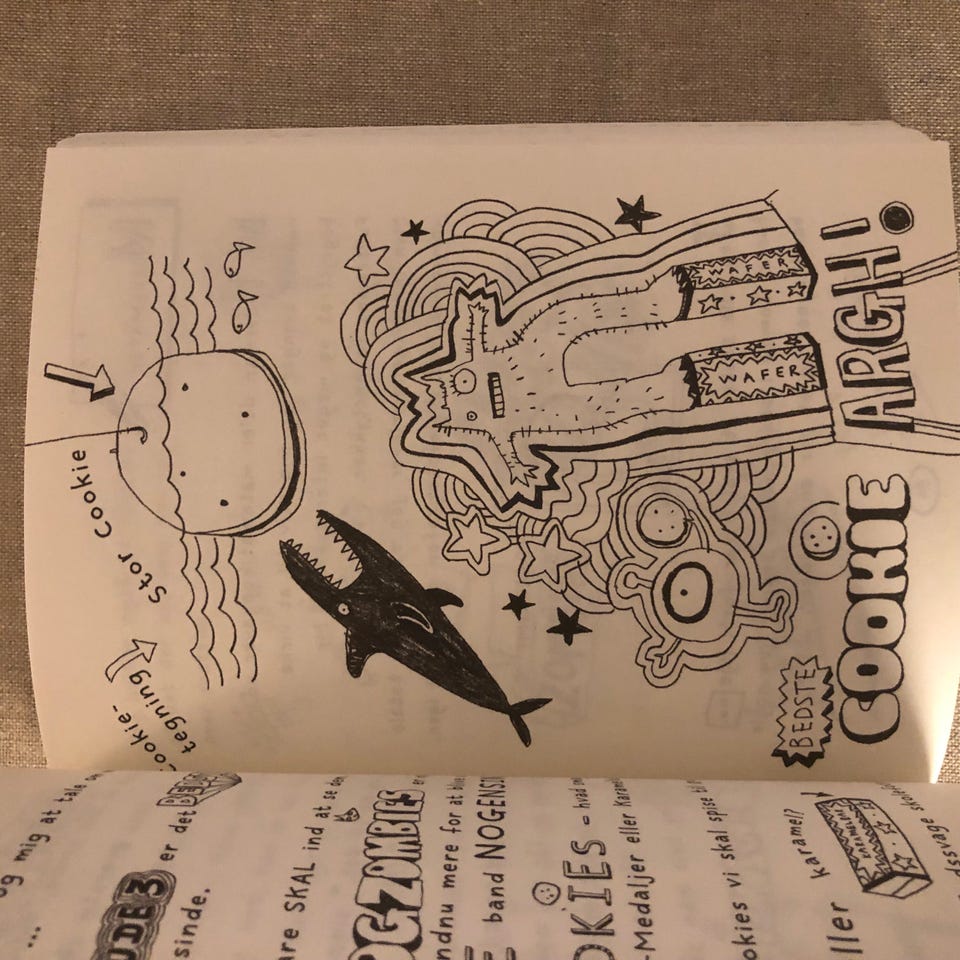 og mig at tale
...
UDE 3 er det
sinde.
are SKAL ind at se den
OGZOMBIES er
ndnu mere for at
band NOGENSI
OKIES - hvad
-Medaljer eller Karamel
ookies vi skal spise til
karamel!?
ller
Cookie-
tegning
Stor Cookie
WAFER
WAFER
BEDSTE
COOKIE ARGH!